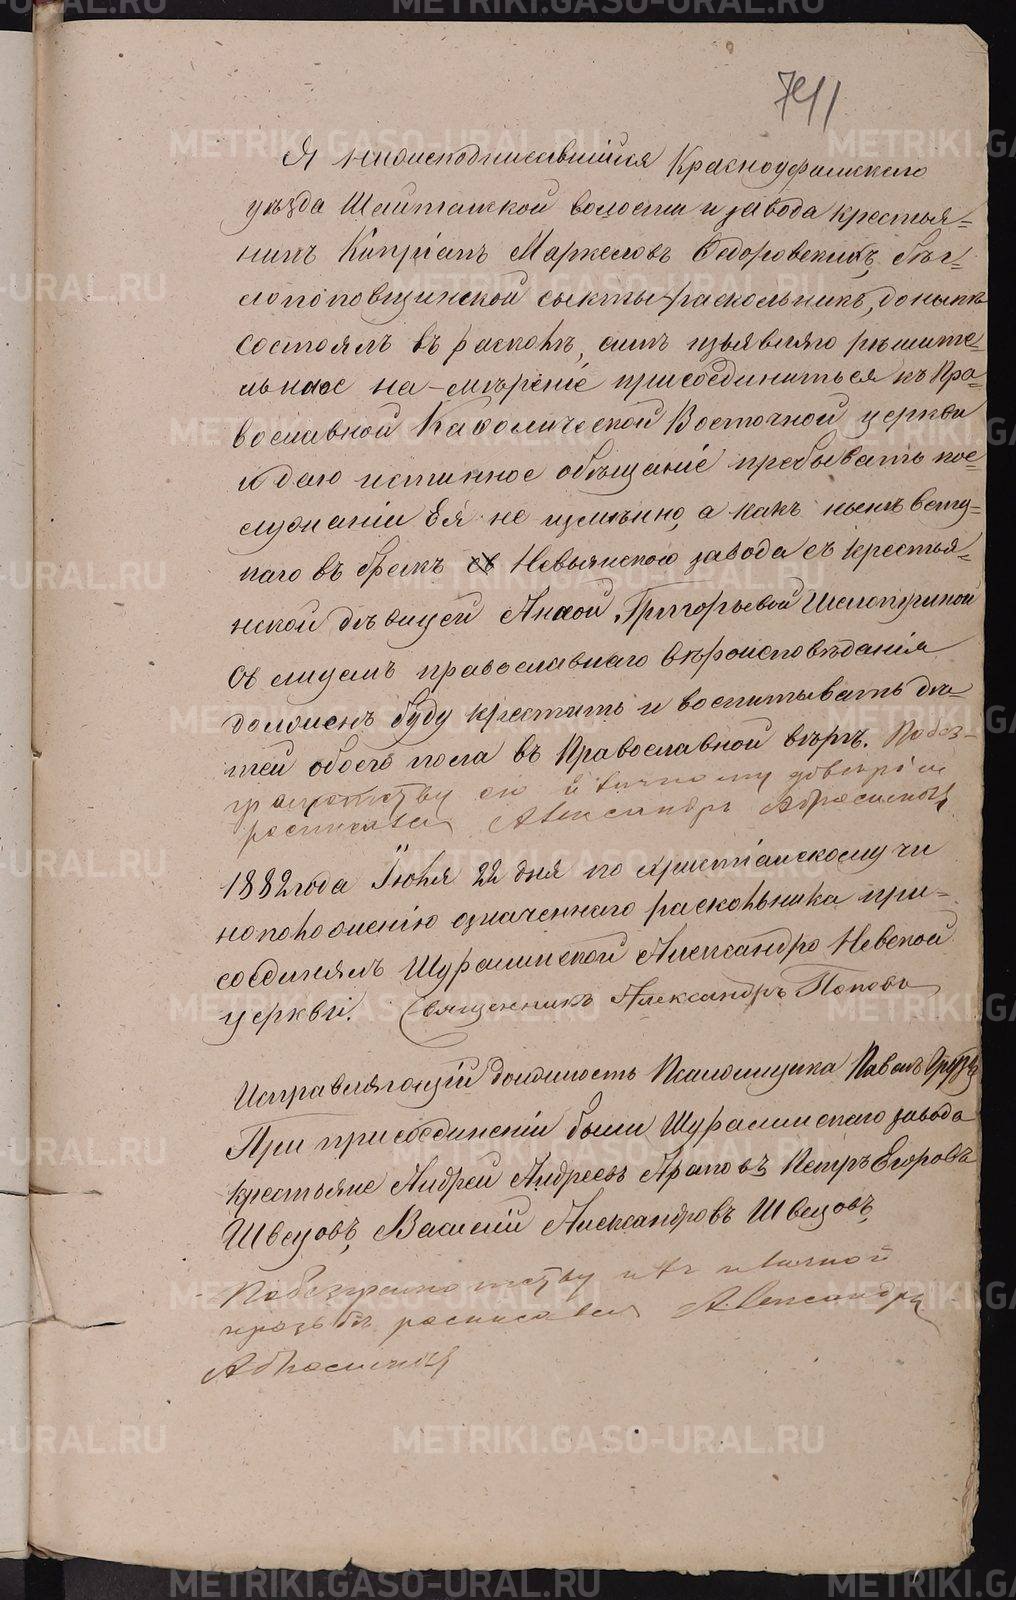 741
Я нижеподписавшійся Красноуфимскаго
уѣзда Шайтанской волости и завода крестья=
нинъ Кипріанъ Маркеловъ Ѳедоровскихъ, бѣг=
лопоповщинской сѣкты раскольникъ, донынѣ
состоялъ въ расколѣ, симъ изъявляю рѣшите=
льное на-мѣреніе присоединиться къ Пра=
вославной Каѳолической Восточной церкви
и даю истинное обѣщаніе пребывать пос=
лушаніи Ея не измѣнно, а какъ нынѣ всту=
паю въ бракъ съ Невьянскою завода съ крестья=
нской дѣвицей Анной Григорьевой Шелопугиной
съ лицемъ православнаго вѣроисповѣданія
долженъ буду крестить и воспитывать дѣ=
тей обоего пола въ Православной вѣрѣ. По без=
грамотству его и личному довѣрію
росписался Александръ
1882 года Іюня 22 дня по христіанскому чи
ноположенію означеннаго раскольника при=
соединялъ Шуралинской Александро Невской
церкви. Священникъ Александръ Поповъ
Исправляющій должность Псаломщика Павелъ
При присоединеніи были Шуралинскаго завода
крестьяне Андрей Андреевъ Араповъ Петръ Егоровъ
Швецовъ, Василій Александровъ Швецовъ,
По безграмотству ихъ и личной
прозьбѣ росписался Александръ